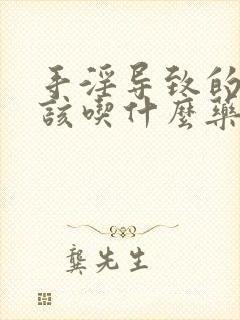 手淫导致的
该喫什麼藥
龔先生